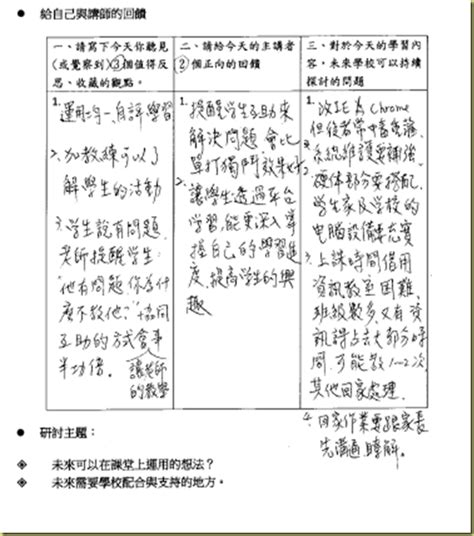 ● 給自己與講師的回饋
一、請寫下今天你聽見
(或覺察到)③個值得反
思、收藏的觀點。
1. 運用均一、自評學習
2. 加教練可以了
解學生的活動
3. 學生說有問題,
老師提醒學生:
"他有問題你為什
麼不教他?"協同
互助的方式會事
半功倍。
讓老師
的教學
二、請給今天的主講者
②個正向的回饋
1. 提醒學生互助來
解決問題,會比
單打獨鬥效果好
2. 讓學生透過平台
學習,能更深入掌
握自己的學習進
度,提高學生的興
趣
三、對於今天的學習內
容,未來學校可以持續
探討的問題
1. 改IE為Chrome
但使者常中毒
系統維護要補強
2. 硬体部分要搭配,
學生家及學校的
电腦設備要充實
3. 上課時間借用
資訊教室困難,
班級數多,又有資
訊課占去大部分時
間,可能教1~2次,
其他回家處理.
4. 回家作業要跟家長
先溝通瞭解。
● 研討主題:
◈ 未來可以在課堂上運用的想法?
◈ 未來需要學校配合與支持的地方。